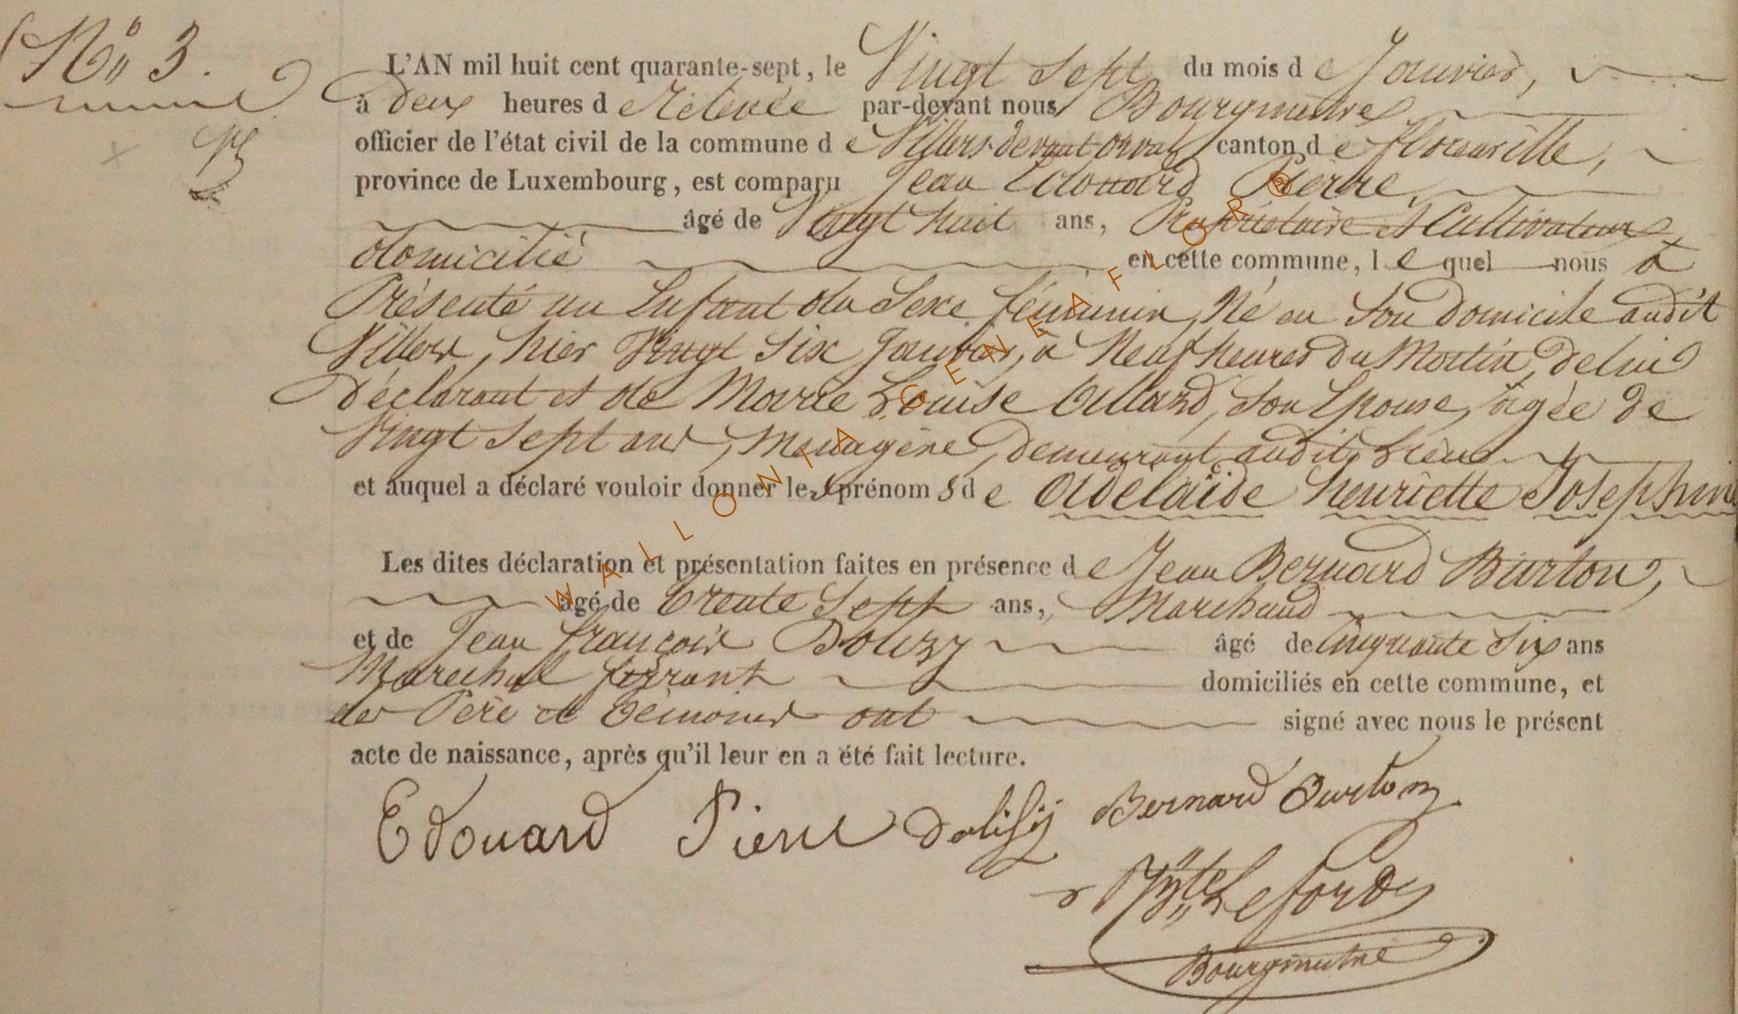 N° 3.
L'AN mil huit cent quarante-sept, le Vingt Sept du mois de Janvier,
à deux heures de Relevée par-devant nous Bourgmestre
officier de l'état civil de la commune de Villers devant orval canton de florenville,
province de Luxembourg, est comparu Jean Edouard Pierre,
âgé de Vingt huit ans, Propriétaire et Cultivateur,
domicilié en cette commune, lequel nous a
Présenté un Enfant du Sexe féminin, Né en Son domicile audit
Villers, hier Vingt Six Janvier, à Neuf heures du Matin, de lui
déclarant et de Marie Louise Allard, Son Epouse, agée de
Vingt Sept ans, Menagère, demeurant audit Lieu
et auquel a déclaré vouloir donner les prénoms de Adelaïde henriette Josephine
Les dites déclaration et présentation faites en présence de Jean Bernard Burton,
âgé de Trente Sept ans, Marchand
et de Jean françois Douzy âgé de Cinquante Six ans
Marechal ferrant domiciliés en cette commune, et
les Père et Témoins ont signé avec nous le présent
acte de naissance, après qu'il leur en a été fait lecture.
Edouard Pierre Bernard Burton
Leford
Bourgmestre
WALLONIA-GENEAFLOR@